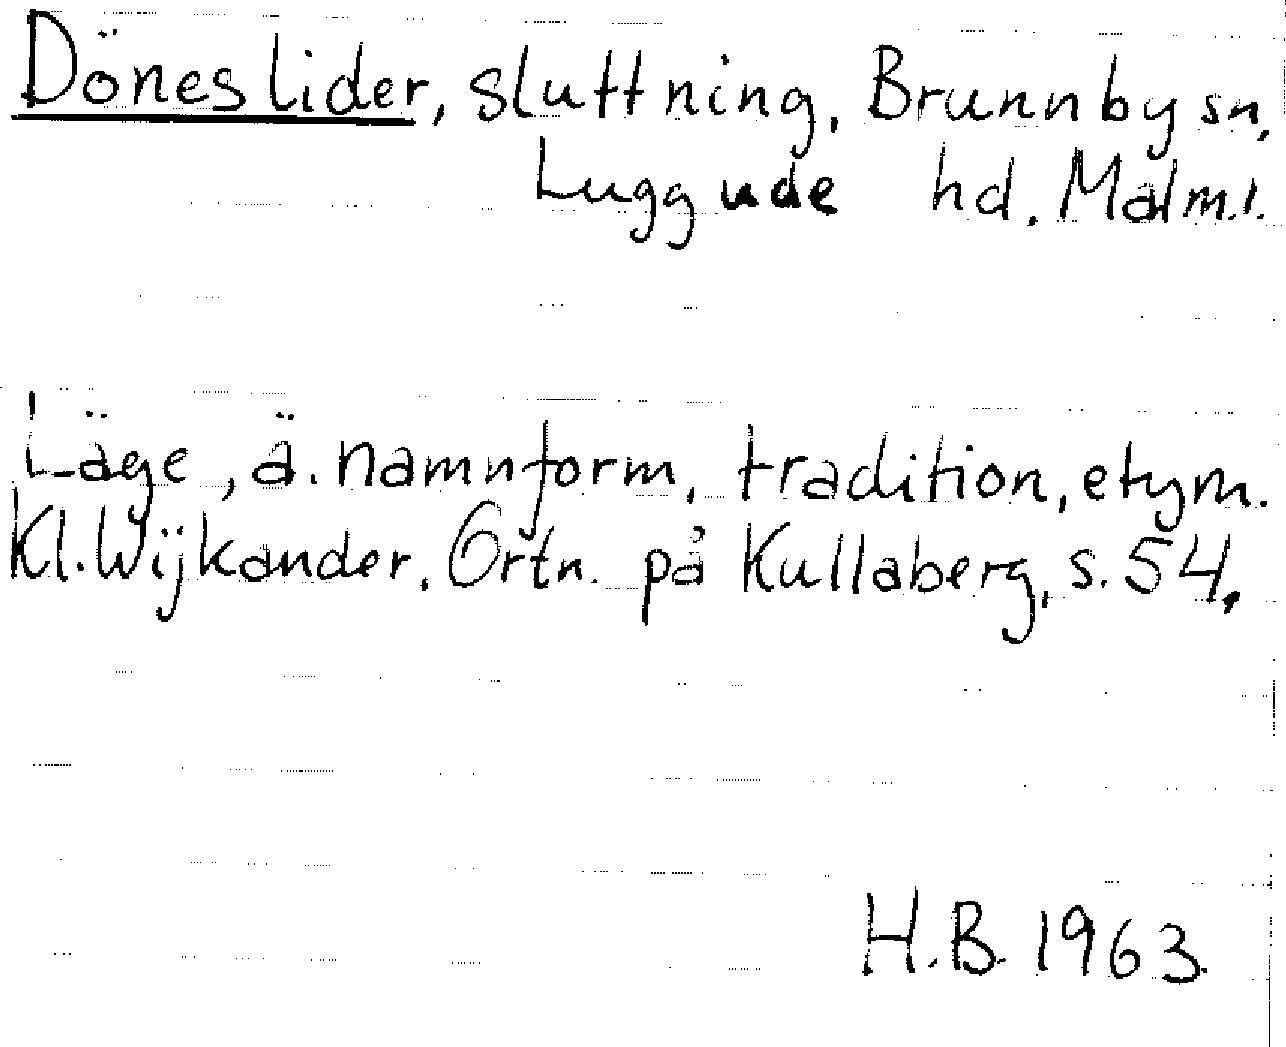 Döneslider, sluttning, Brunnby sn,
Luggude hd. Malm.l.
Läge, ä. namnform, tradition, etym.
Kl. Wijkander. Ortn. på Kullaberg, s. 54.
H.B. 1963